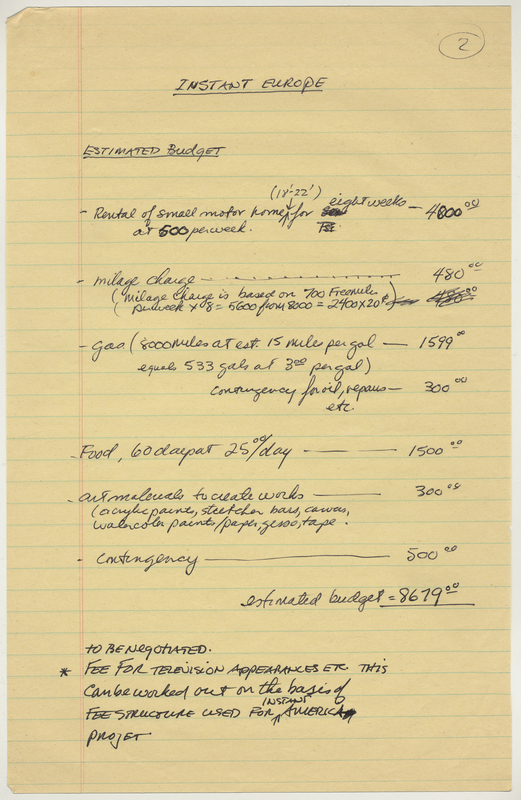 2
INSTANT EUROPE
ESTIMATED Budget
(18'-22')
- Rental of small motor home for eight weeks — 4800.00
at 600 per week.
- milage charge - - - - - - - - - 480.00
(Milage Charge is based on 700 Free miles
per week x 8 = 5600 from 8000 = 2400 x 20¢)
- gas (8000 miles at est. 15 mile per gal — 1599.00
equals 533 gals at 3.00 per gal)
Contingency for oil, repairs — 300.00
etc.
- Food, 60 days at 25.00/day — 1500.00
- art materials to create works — 300.00
(acrylic paints, stretcher bars, canvas,
watercolor paints/paper, gesso, tape.
- Contingency — 500.00
estimated budget = 8679.00
TO BE NEGOTIATED.
* FEE FOR TELEVISION APPEARANCES ETC. THIS
Can be worked out on the basis of
FEE STRUCTURE USED FOR INSTANT AMERICA
PROJET.